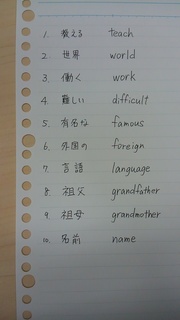 1. 教える teach
2. 世界 world
3. 働く work
4. 難しい difficult
5. 有名な famous
6. 外国の foreign
7. 言語 language
8. 祖父 grandfather
9. 祖母 grandmother
10. 名前 name